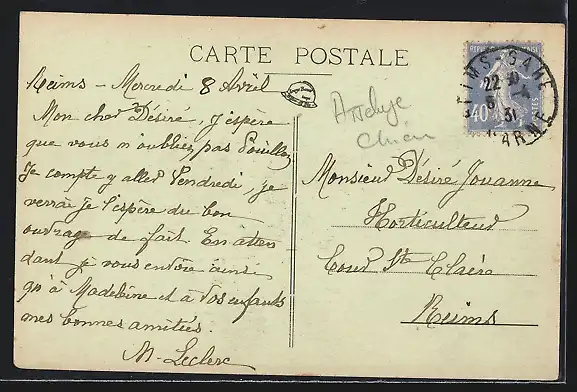 CARTE POSTALE
Reims - Mercredi 8 Avril
Mon cher Désiré, j'espère
que vous n'oubliez pas Pouillon
Je compte y aller Vendredi, je
verrai je l'espère du bon
ouvrage de fait. En atten
dant je vous envoie ainsi
qu'à Madeleine et à vos enfants
mes bonnes amitiés.
M. Leclerc
Attelage
Chien
REPUBLIQUE FRANÇAISE
40
POSTES
REIMS GARE
22
8-4
31
MARNE
Monsieur Désiré Jouanne
Horticulteur
Cour Ste Claire
Reims